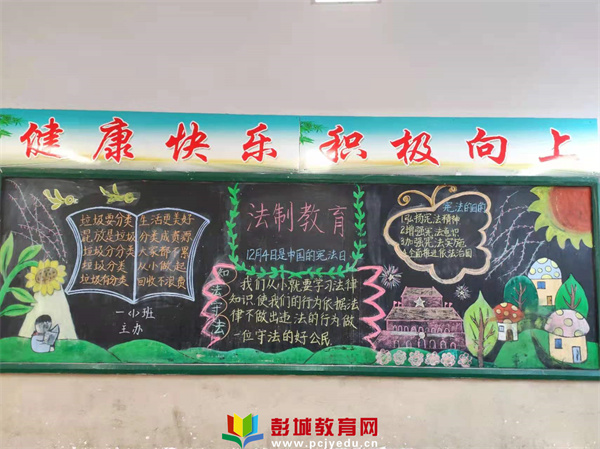 健康快乐 积极向上
垃圾要分类 生活更美好
混放是垃圾 分类成资源
垃圾分分类 大家都不累
垃圾分分类 从小做起
垃圾有分类 回收不浪费
一小班
主办
法制教育
12月4日是中国的宪法日
知法守法
我们从小就要学习法律
知识使我们的行为依据法
律不做出违法的行为做
一位守法的好公民
宪法的目的
1弘扬宪法精神
2增强宪法意识
3加强宪法实施
4全面推进依法治国
彭城教育网
www.pcjyedu.cn